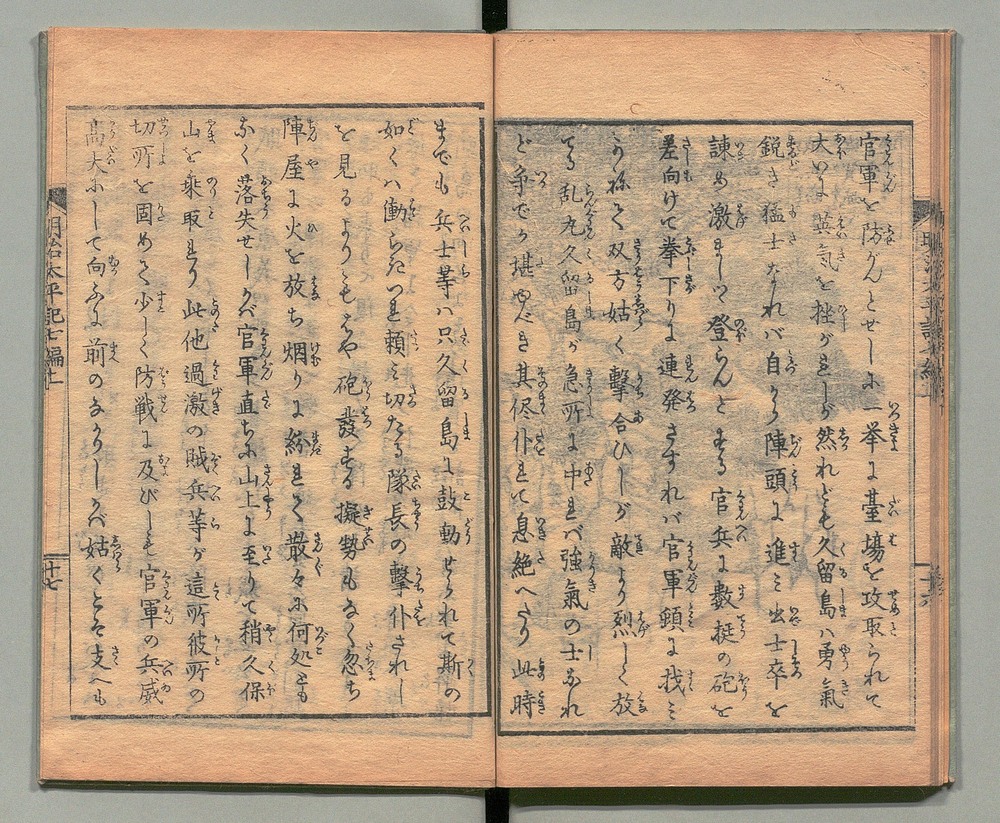 官軍を防がんとせしに一挙に臺場を攻取られて
大いに英気を挫がれしが然れども久留島ハ勇氣
鋭き猛士なれバ自から陣頭に進ミ出士卒を
諫め激ましつ登らんとする官兵に数挺の砲を
差向けて拳下りに連発さすれバ官軍頻に找ミ
かねて双方姑く撃合ひしが敵より烈しく放
てる乱丸久留島が急所に中れバ強氣の士なれ
ど争でか堪ゆべき其侭仆れて息絶へたり此時
までも兵士等ハ只久留島に鼓動せられて斯の
如くハ働らきつれ頼ミ切たる隊長の撃仆されし
を見るよりもはや砲發する擬勢もなく忽ち
陣屋に火を放ち烟りに紛れて散々に何処とも
なく落失せしかバ官軍直ちに山上に至りて稍久保
山を乗取れり此他過激の賊兵等が這所彼所の
切所を固めて少しく防戦に及びしも官軍の兵威
高大にして向ふに前のなかりしかバ姑くこそ支へも
明治太平記七編上
十七